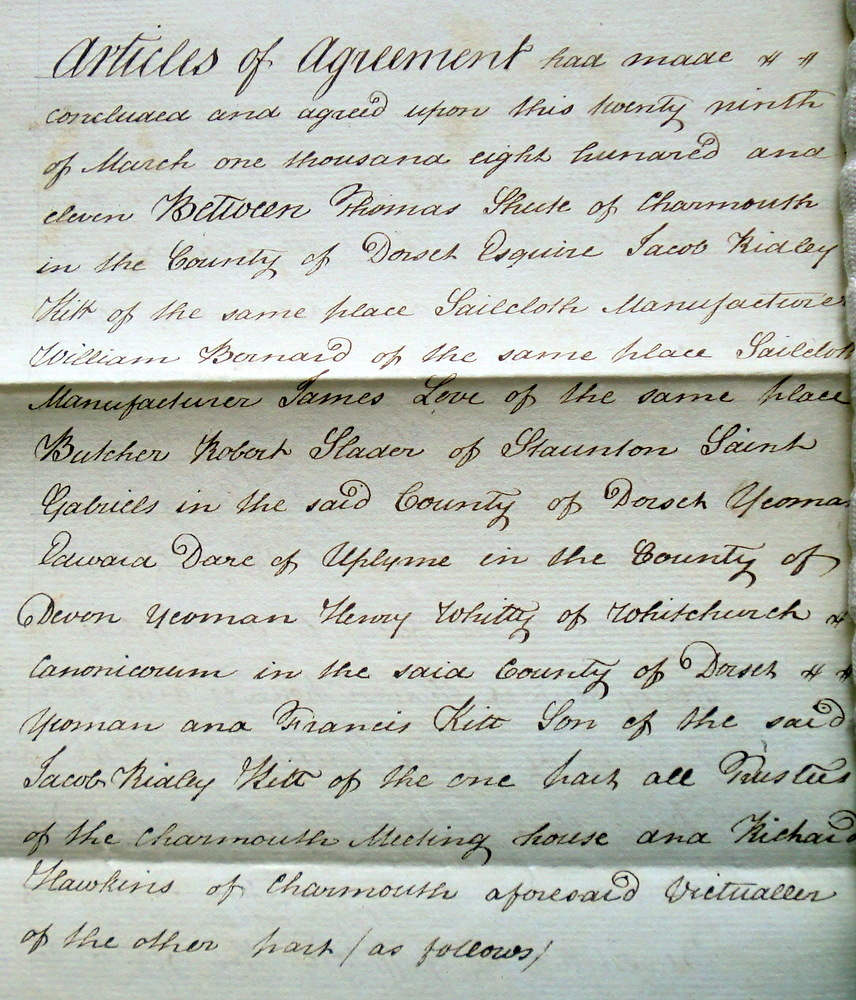 Articles of Agreement had made
concluded and agreed upon this twenty ninth
of March one thousand eight hundred and
eleven Between Thomas Shute of Charmouth
in the County of Dorset Esquire Jacob Ridley
Kitt of the same place Sailcloth Manufacturer
William Bernard of the same place Sailcloth
Manufacturer James Love of the same place
Butcher Robert Slader of Staunton Saint
Gabriels in the said County of Dorset Yeoman
Edward Dare of Uplyme in the County of
Devon Yeoman Henry Whitty of Whitchurch
Canonicorum in the said County of Dorset
Yeoman and Francis Kitt Son of the said
Jacob Ridley Kitt of the one part all Trustees
of the Charmouth Meeting house and Richard
Hawkins of Charmouth aforesaid Victualler
of the other part (as follows)